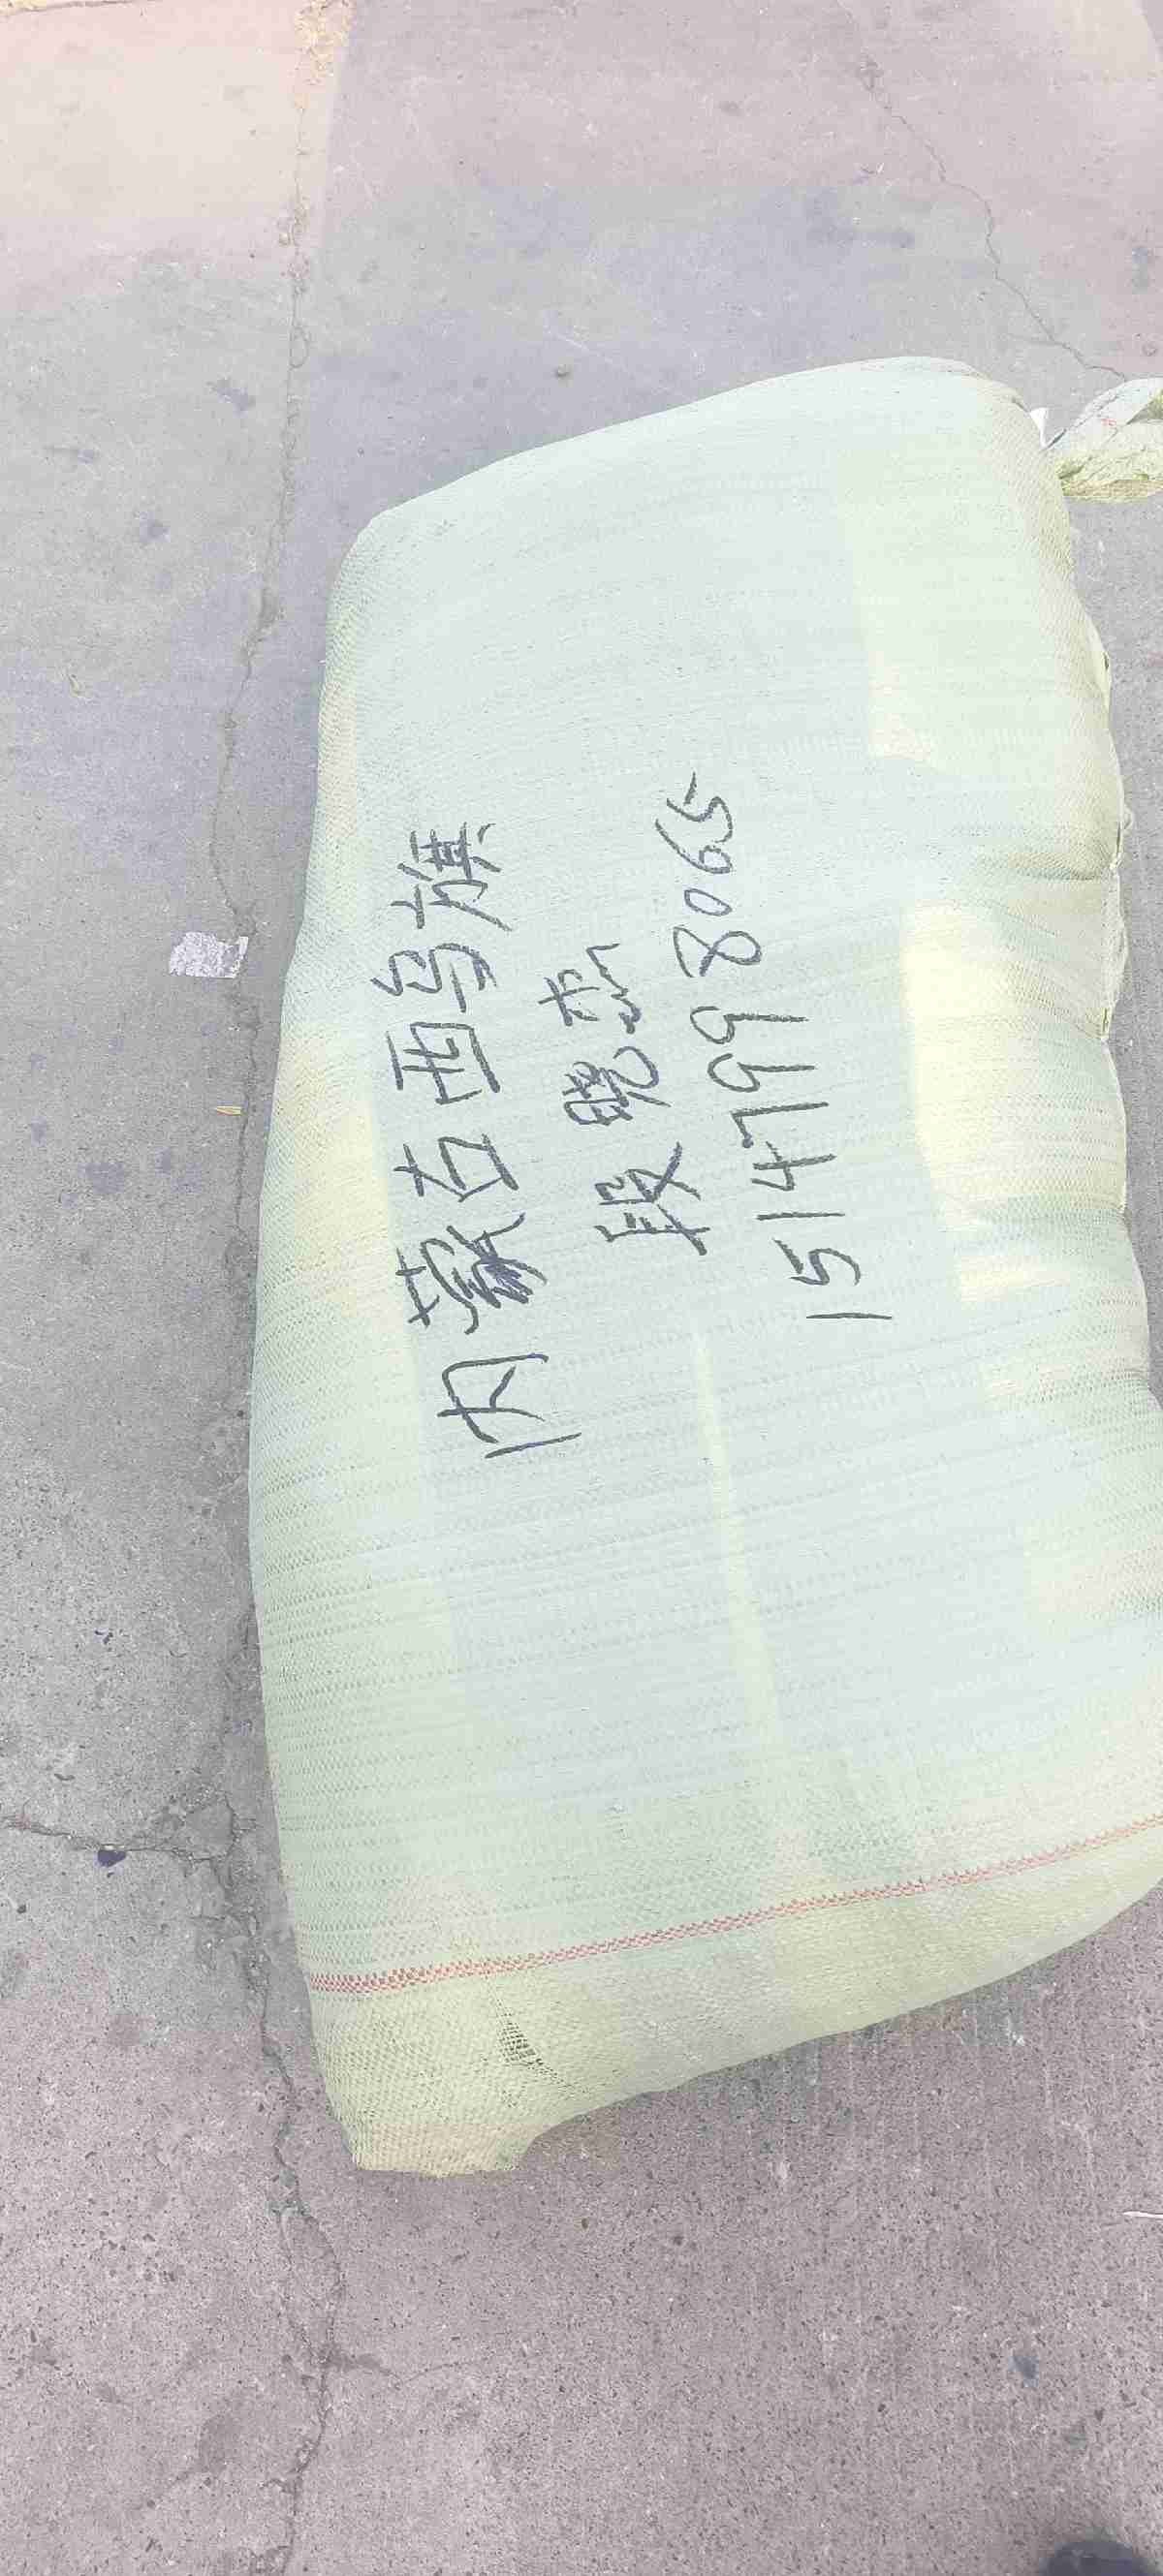 内蒙古西乌旗
段晓杰
15147998065